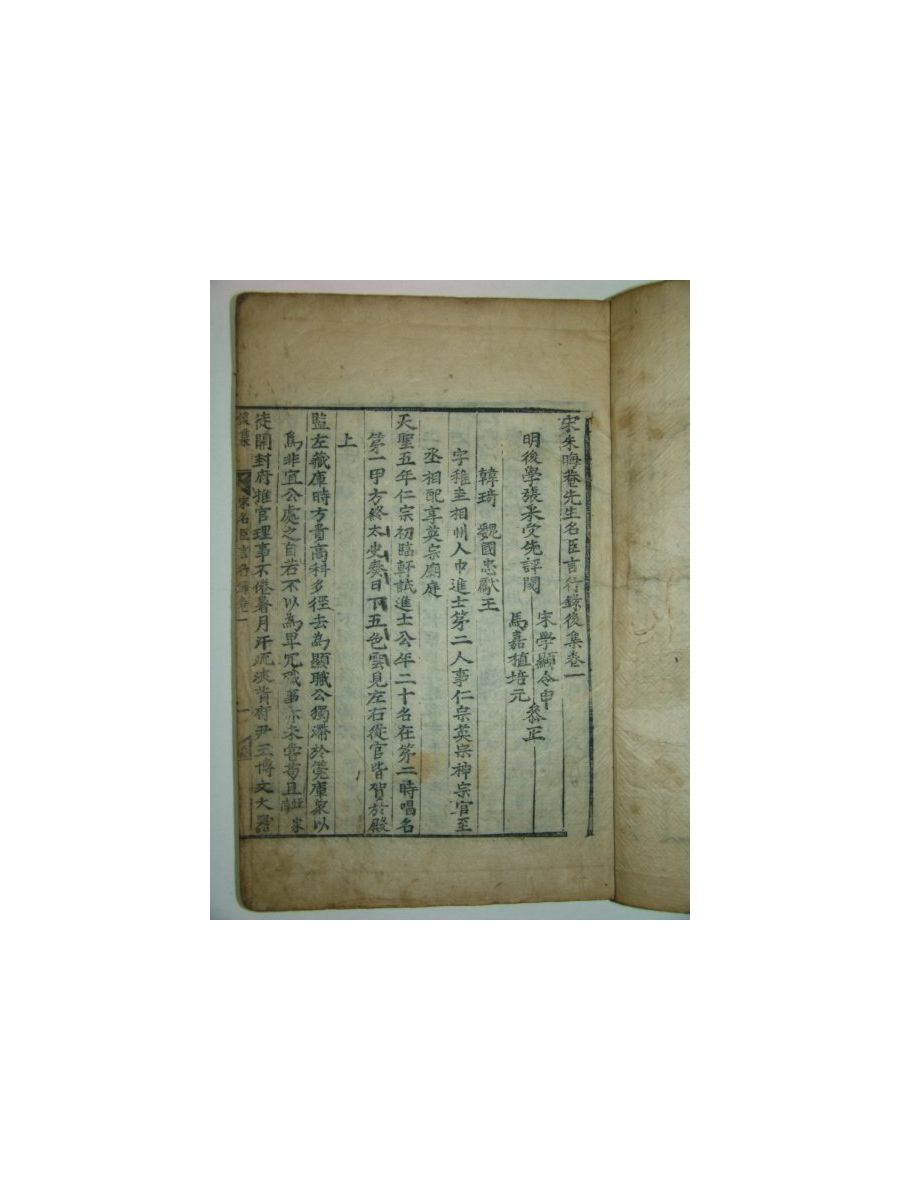 宋朱晦菴先生名臣言行錄後集卷一
明後學張采受先評閱
宋學顯令申
馬嘉植培元
叅正
韓琦 魏國忠獻王
字稚圭相州人中進士第二人事仁宗英宗神宗官至
丞相配享英宗廟庭
天聖五年仁宗初臨軒試進士公年二十名在第二時唱名
第一甲方終太史奏日下五色雲見左右從官皆賀於殿
上
監左藏庫時方貴高科多徑去為顯職公獨滯於筦庫衆以
為非宜公處之自若不以為卑冗職事亦未嘗苟且
徒開封府推官理事不倦暑月汗流浹背府尹王博文大器
後集 宋名臣言行錄卷一 一